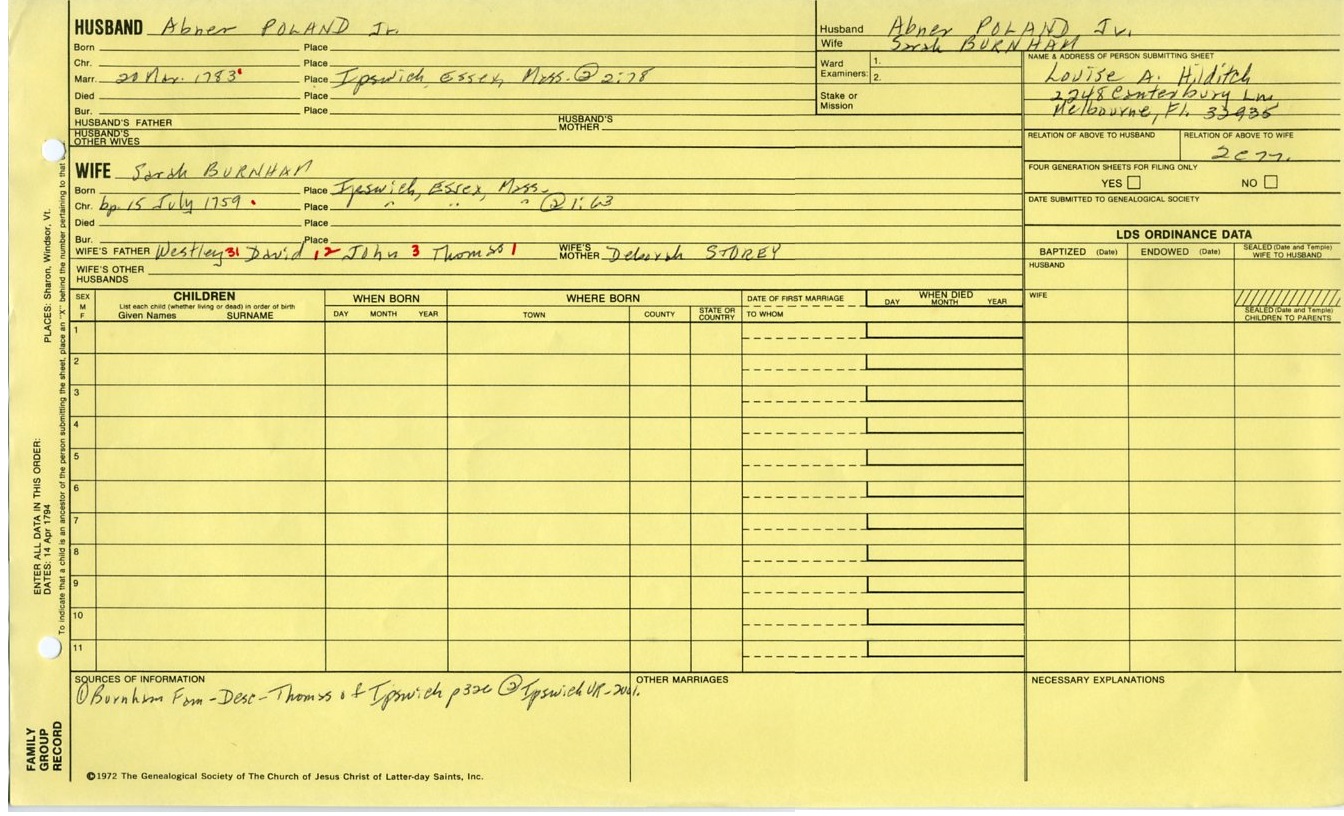 HUSBAND Abner POLAND Jr.
Born Place
Chr. Place
Marr. 20 Mar. 1783 Place Ipswich, Essex, Mass. ② 2:78
Died Place
Bur. Place
HUSBAND'S FATHER HUSBAND'S MOTHER
HUSBAND'S OTHER WIVES
WIFE Sarah BURNHAM
Born Place Ipswich, Essex, Mass.
Chr. bp. 15 July 1759 Place " " " ② 1:63
Died Place
Bur. Place
WIFE'S FATHER Westley 31 David 12 John 3 Thomas 1 WIFE'S MOTHER Deborah STOREY
WIFE'S OTHER HUSBANDS
Husband Abner POLAND Jr.
Wife Sarah BURNHAM
Ward Examiners: 1. 2.
Stake or Mission
NAME & ADDRESS OF PERSON SUBMITTING SHEET
Louise A. Hilditch
2248 Canterbury Ln
Melbourne, Fl. 32935
RELATION OF ABOVE TO HUSBAND RELATION OF ABOVE TO WIFE
FOUR GENERATION SHEETS FOR FILING ONLY
YES NO
DATE SUBMITTED TO GENEALOGICAL SOCIETY
LDS ORDINANCE DATA
BAPTIZED (Date) ENDOWED (Date) SEALED (Date and Temple) WIFE TO HUSBAND
HUSBAND
WIFE
SEALED (Date and Temple) CHILDREN TO PARENTS
SEX M F
CHILDREN
List each child (whether living or dead) in order of birth
Given Names SURNAME
WHEN BORN
DAY MONTH YEAR
WHERE BORN
TOWN COUNTY STATE OR COUNTRY
DATE OF FIRST MARRIAGE
TO WHOM
WHEN DIED
DAY MONTH YEAR
1
2
3
4
5
6
7
8
9
10
11
SOURCES OF INFORMATION
① Burnham Fam-Desc-Thomas of Ipswich p326 ② Ipswich VR-2vol.
OTHER MARRIAGES
NECESSARY EXPLANATIONS
©1972 The Genealogical Society of The Church of Jesus Christ of Latter-day Saints, Inc.
FAMILY GROUP RECORD
ENTER ALL DATA IN THIS ORDER:
DATES: 14 Apr 1794
PLACES: Sharon, Windsor, Vt.
To indicate that a child is an ancestor of the person submitting the sheet, place an "X" behind the number pertaining to that